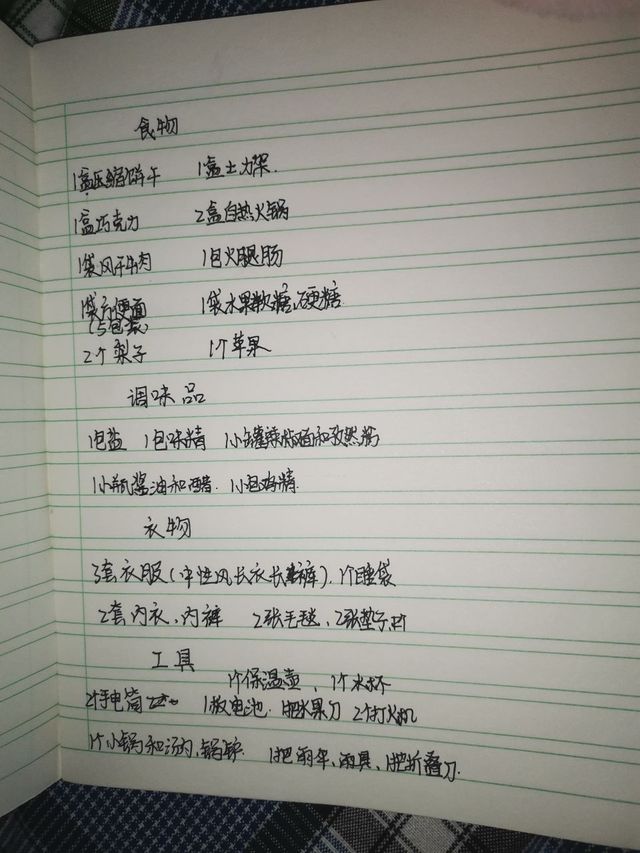 食物
1盒压缩饼干 1盒士力架.
1盒巧克力 2盒自热火锅
1袋风干牛肉 1包火腿肠
1袋方便面 1袋水果软糖、硬糖
(5包装)
2个梨子 1个苹果
调味品
1包盐 1包味精 1小罐辣椒面和孜然粉
1小瓶酱油和醋. 1小包鸡精.
衣物
3套衣服(中性风长衣长裤). 1个睡袋
2套内衣、内裤 2张毛毯、2张垫子
工具
1个保温壶、1个水杯
2个手电筒 1板电池. 1把水果刀 2个打火机
1个小锅和汤勺、锅铲. 1把雨伞、雨具、1把折叠刀.